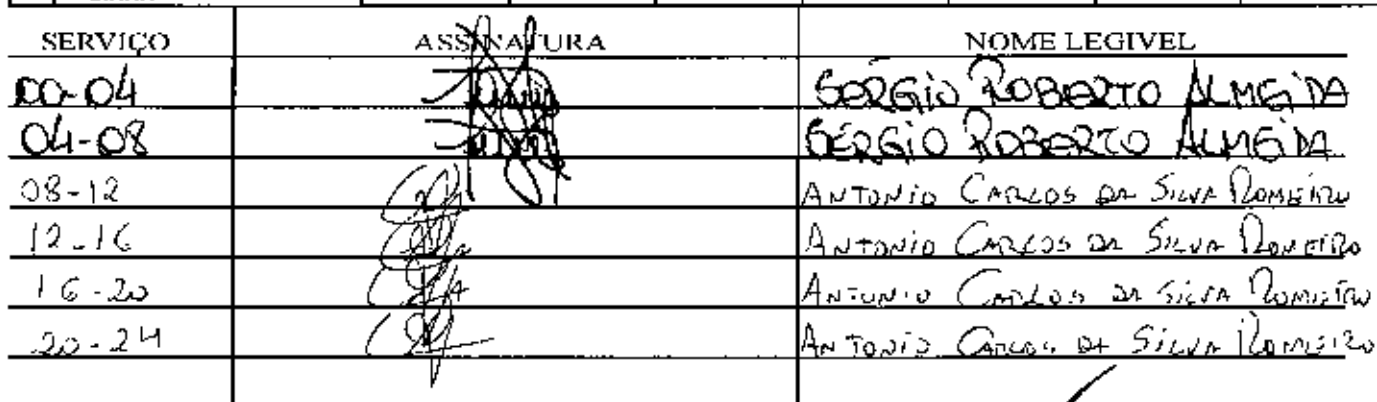 SERVIÇO ASSINATURA NOME LEGIVEL
00-04 SERGIO ROBERTO ALMEIDA
04-08 SÉRGIO ROBERTO ALMEIDA
08-12 ANTONIO CARLOS DA SILVA ROMEIRO
12-16 ANTONIO CARLOS DA SILVA ROMEIRO
16-20 ANTONIO CARLOS DA SILVA ROMEIRO
20-24 ANTONIO CARLOS DA SILVA ROMEIRO